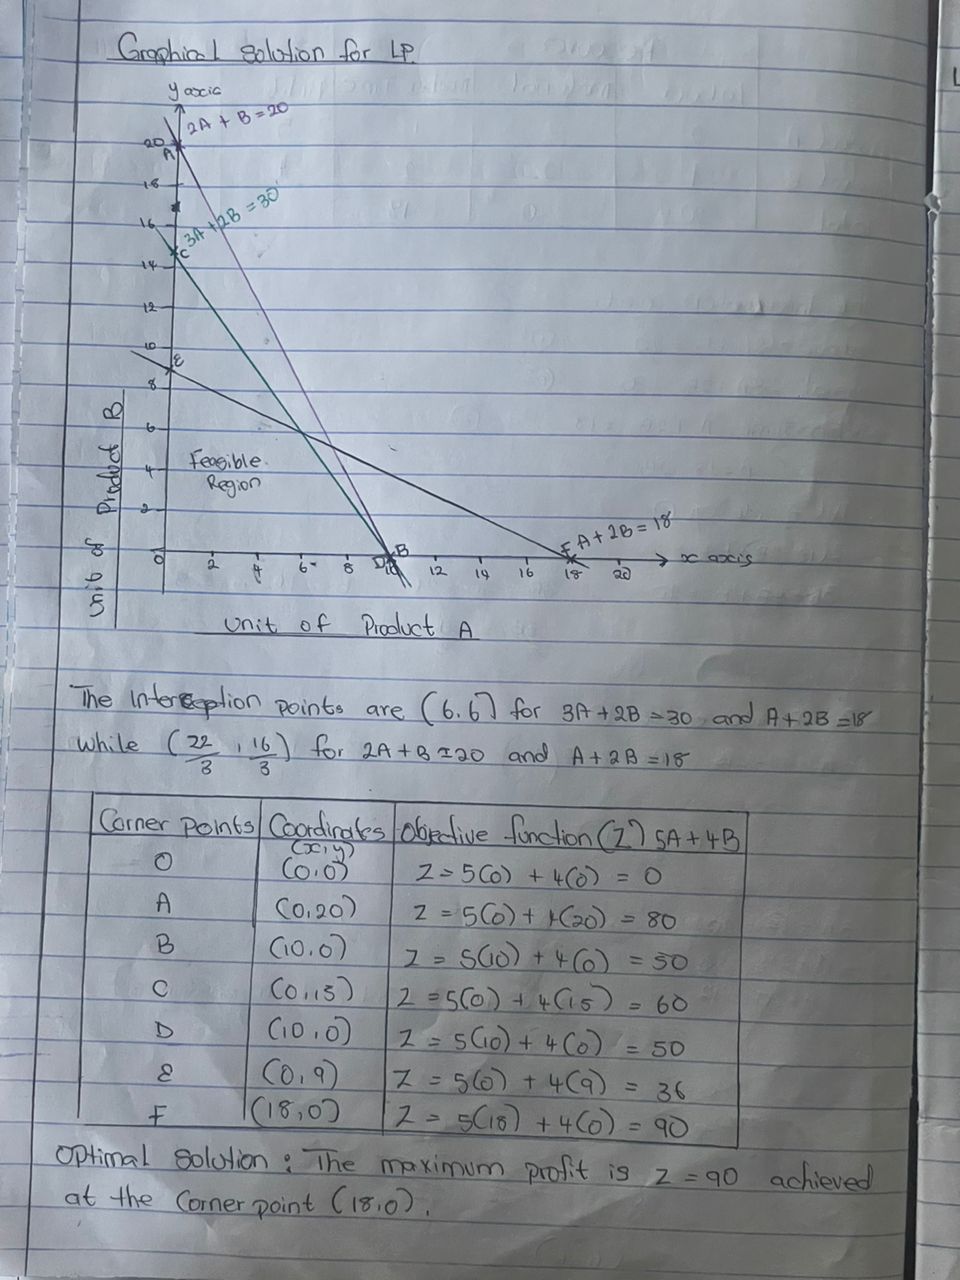 Graphical solution for LP
y axis
2A + B = 20
20
A
18
3A + 2B = 30
16
C
14
12
10
E
8
6
Feasible
4
Region
2
F A + 2B = 18
D B
0 2 4 6 8 10 12 14 16 18 20 x axis
Unit of Product B
Unit of Product A
The Interception points are (6.6) for 3A + 2B = 30 and A + 2B = 18
while (22/3, 16/3) for 2A + B = 20 and A + 2B = 18
Corner points Coordinates Objective function (Z) 5A + 4B
(x,y)
O (0,0) Z = 5(0) + 4(0) = 0
A (0,20) Z = 5(0) + 4(20) = 80
B (10,0) Z = 5(10) + 4(0) = 50
C (0,15) Z = 5(0) + 4(15) = 60
D (10,0) Z = 5(10) + 4(0) = 50
E (0,9) Z = 5(0) + 4(9) = 36
F (18,0) Z = 5(18) + 4(0) = 90
Optimal Solution : The maximum profit is Z = 90 achieved
at the Corner point (18,0).